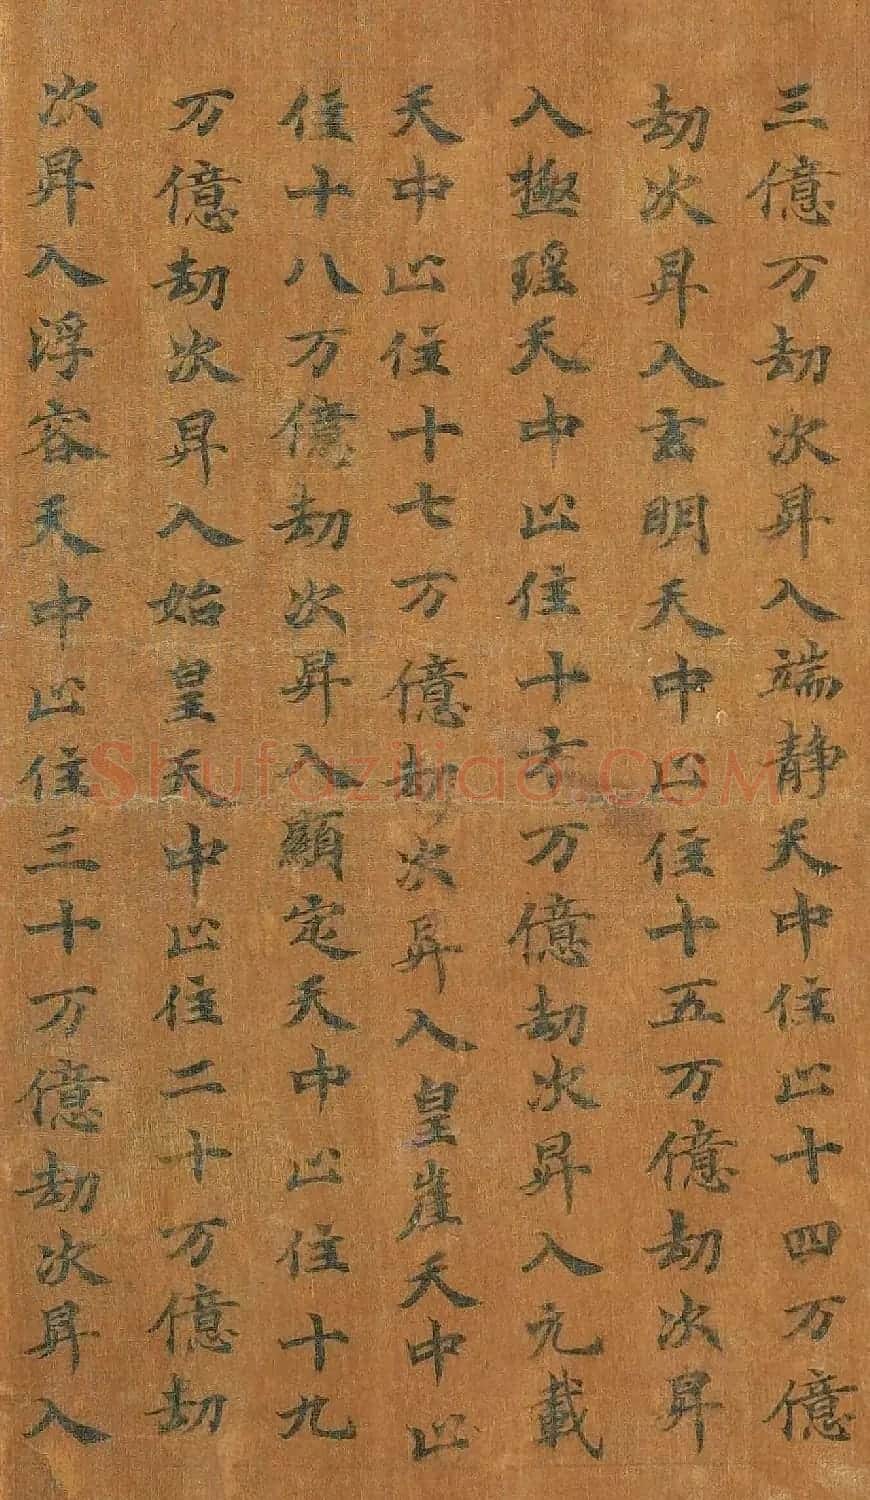 三億万劫次昇入端静天中住止十四万億
劫次昇入玄明天中止住十五万億劫次昇
入極瑶天中止住十六万億劫次昇入元載
天中止住十七万億劫次昇入皇崖天中止
住十八万億劫次昇入顯定天中止住十九
万億劫次昇入始皇天中止住二十万億劫
次昇入浮容天中止住三十万億劫次昇入
Shufaziliao.COM